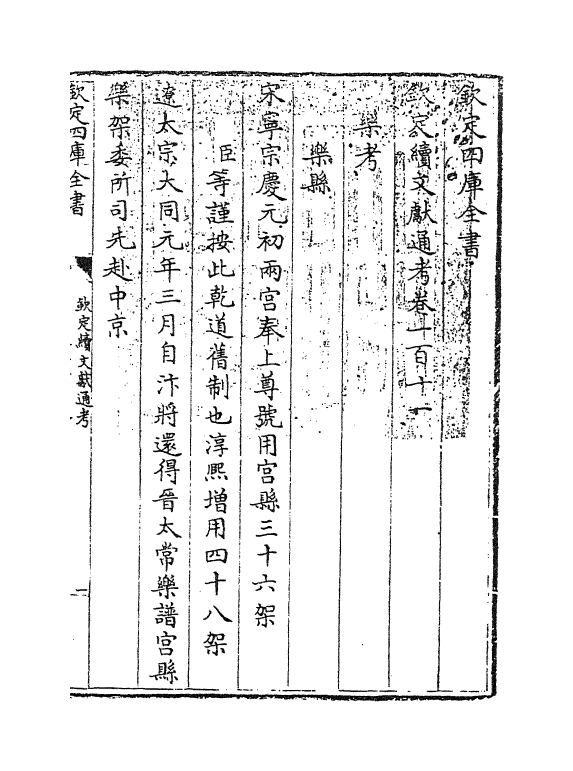 欽定四庫全書
欽定續文獻通考卷一百十一
樂考
樂縣
宋寧宗慶元初兩宫奉上尊號用宫縣三十六架
臣等謹按此乾道舊制也淳熙增用四十八架
遼太宗大同元年三月自汴將還得晉太常樂譜宫縣
樂架委所司先赴中京
欽定四庫全書
欽定續文獻通考
一